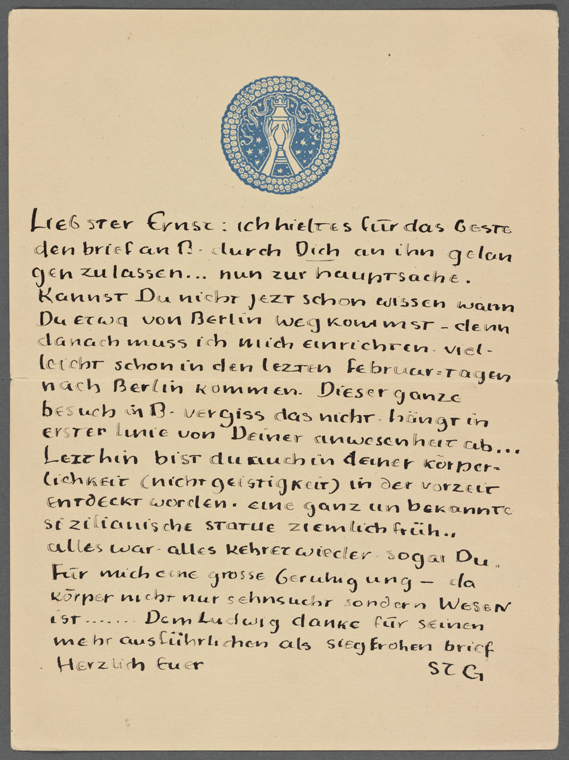 Liebster Ernst: ich hielt es für das beste
den brief an B. durch Dich an ihn gelan
gen zu lassen... nun zur hauptsache.
Kannst Du nicht jezt schon wissen wann
Du etwa von Berlin weg kommst – denn
danach muss ich mich einrichten. viel-
leicht schon in den lezten Februar-tagen
nach Berlin kommen. Dieser ganze
besuch in B. vergiss das nicht. hängt in
erster linie von Deiner anwesenheit ab...
Lezthin bist du auch in deiner körper-
lichkeit (nicht geistigkeit) in der vorzeit
entdeckt worden. eine ganz unbekannte
sizilianische statue ziemlich früh..
alles war. alles kehret wieder. sogar Du.
Für mich eine grosse beruhigung – da
körper nicht nur sehnsucht sondern WESEN
ist....... Dem Ludwig danke für seinen
mehr ausführlichen als siegfrohen brief
Herzlich Euer ST G